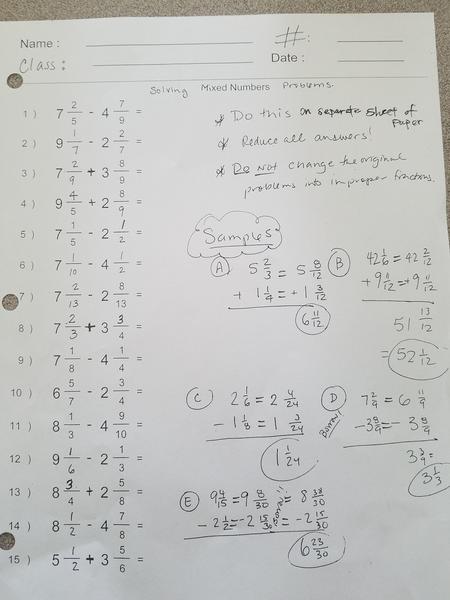 Name : #:
Class : Date :
Solving Mixed Numbers Problems.
1 ) 7 2/5 - 4 7/9 =
2 ) 9 1/7 - 2 2/7 =
3 ) 7 2/9 + 3 8/9 =
4 ) 9 4/5 + 2 8/9 =
5 ) 7 1/5 - 2 1/2 =
6 ) 7 1/10 - 4 1/2 =
7 ) 7 2/13 - 2 8/13 =
8 ) 7 2/3 + 3 3/4 =
9 ) 7 1/8 - 4 1/4 =
10 ) 6 5/7 - 2 3/4 =
11 ) 8 1/3 - 4 9/10 =
12 ) 9 1/6 - 2 1/3 =
13 ) 8 3/4 + 2 5/8 =
14 ) 8 1/2 - 4 7/8 =
15 ) 5 1/2 + 3 5/6 =
* Do this on separate sheet of Paper
* Reduce all answers!
* Do Not change the original
problems into improper fractions.
Samples
A 5 2/3 = 5 8/12
+ 1 1/4 = + 1 3/12
6 11/12
B 42 1/6 = 42 2/12
+ 9 11/12 = + 9 11/12
51 13/12
= 52 1/12
C 2 1/6 = 2 4/24
- 1 1/8 = 1 3/24
1 1/24
D 7 2/9 = 6 11/9
Borrow!
- 3 8/9 = - 3 8/9
3 3/9 =
3 1/3
E 9 4/15 = 9 8/30 = 8 38/30
- 2 1/2 = - 2 15/30 = - 2 15/30
6 23/30